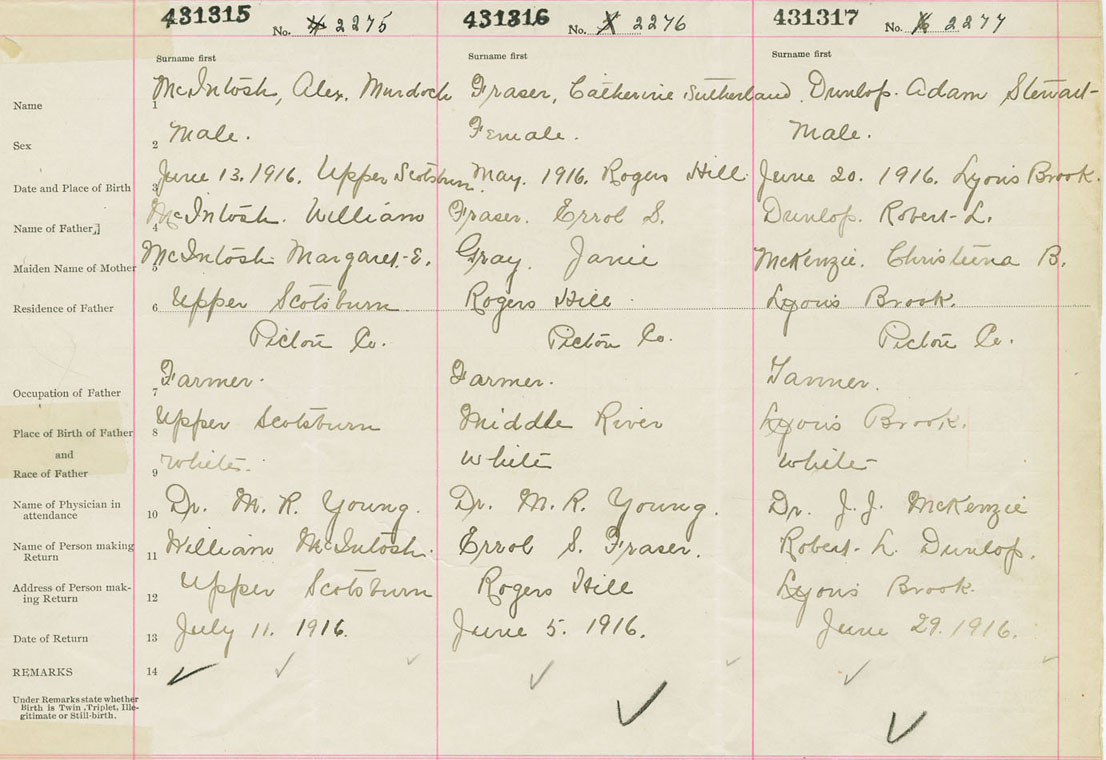 431315 No. 2275 431316 No. 2276 431317 No. 2277
Surname first Surname first Surname first
Name 1 McIntosh, Alex. Murdoch Fraser, Catherine Sutherland. Dunlop. Adam Stewart
Sex 2 Male. Female. Male.
Date and Place of Birth 3 June 13. 1916. Upper Scotsburn. May. 1916. Rogers Hill June 20. 1916. Lyons Brook.
Name of Father 4 McIntosh. William Fraser. Errol S. Dunlop. Robert L.
Maiden Name of Mother 5 McIntosh Margaret E. Gray. Janie McKenzie. Christina B.
Residence of Father 6 Upper Scotsburn Rogers Hill Lyons Brook.
Pictou Co. Pictou Co. Pictou Co.
Occupation of Father 7 Farmer. Farmer. Tanner.
Place of Birth of Father 8 Upper Scotsburn Middle River Lyons Brook.
and
Race of Father 9 White. White White
Name of Physician in
attendance 10 Dr. M. R. Young. Dr. M. R. Young. Dr. J. J. McKenzie
Name of Person making
Return 11 William McIntosh. Errol S. Fraser. Robert L. Dunlop.
Address of Person mak-
ing Return 12 Upper Scotsburn Rogers Hill Lyons Brook.
Date of Return 13 July 11. 1916. June 5. 1916. June 29. 1916.
REMARKS 14
Under Remarks state whether
Birth is Twin, Triplet, Ille-
gitimate or Still-birth.